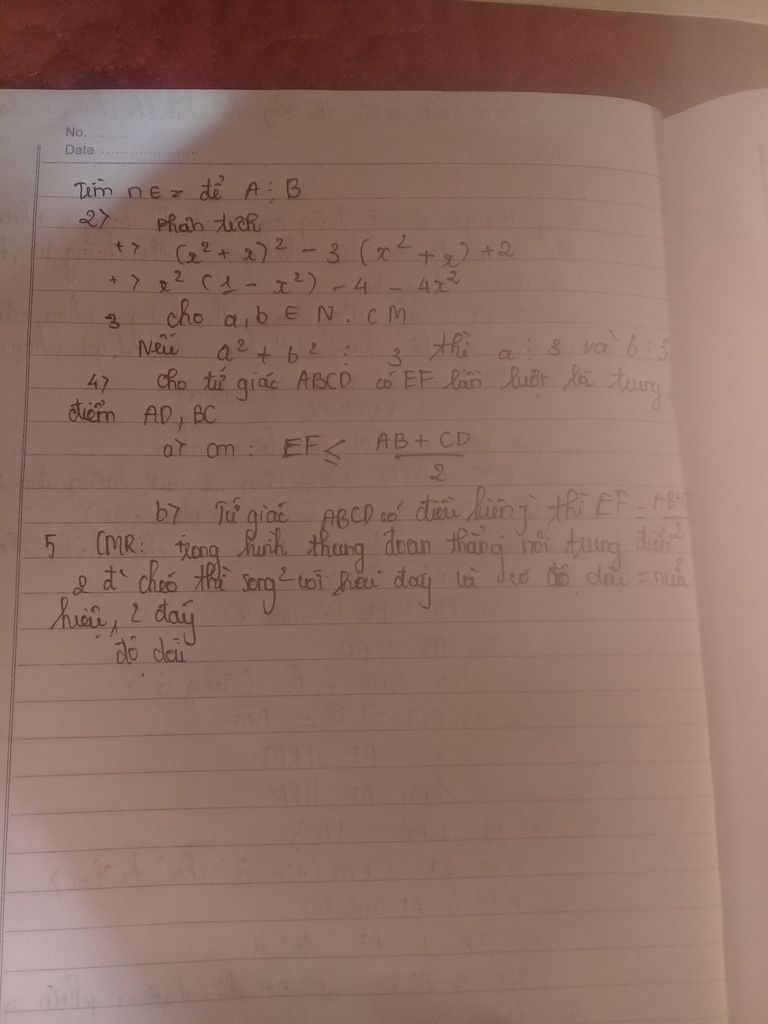 No. ............
Date ......................
Tìm n ∈ z để A ⋮ B
2> phân tích
+> (x² + x)² - 3 (x² + x) + 2
+> x² (1 - x²) - 4 - 4x²
3 cho a, b ∈ N. CM
Nếu a² + b² ⋮ 3 thì a ⋮ 3 và b ⋮ 3
4> cho tứ giác ABCD có EF lần lượt là trung
điểm AD, BC
a> cm : EF ≤ AB + CD / 2
b> Tứ giác ABCD có điều kiện j thì EF = AB+CD / 2
5 CMR: trong hình thang đoạn thẳng nối trung điểm
2 đ' chéo thì song² với hai đáy và có độ dài = nửa
hiệu, 2 đáy
độ dài